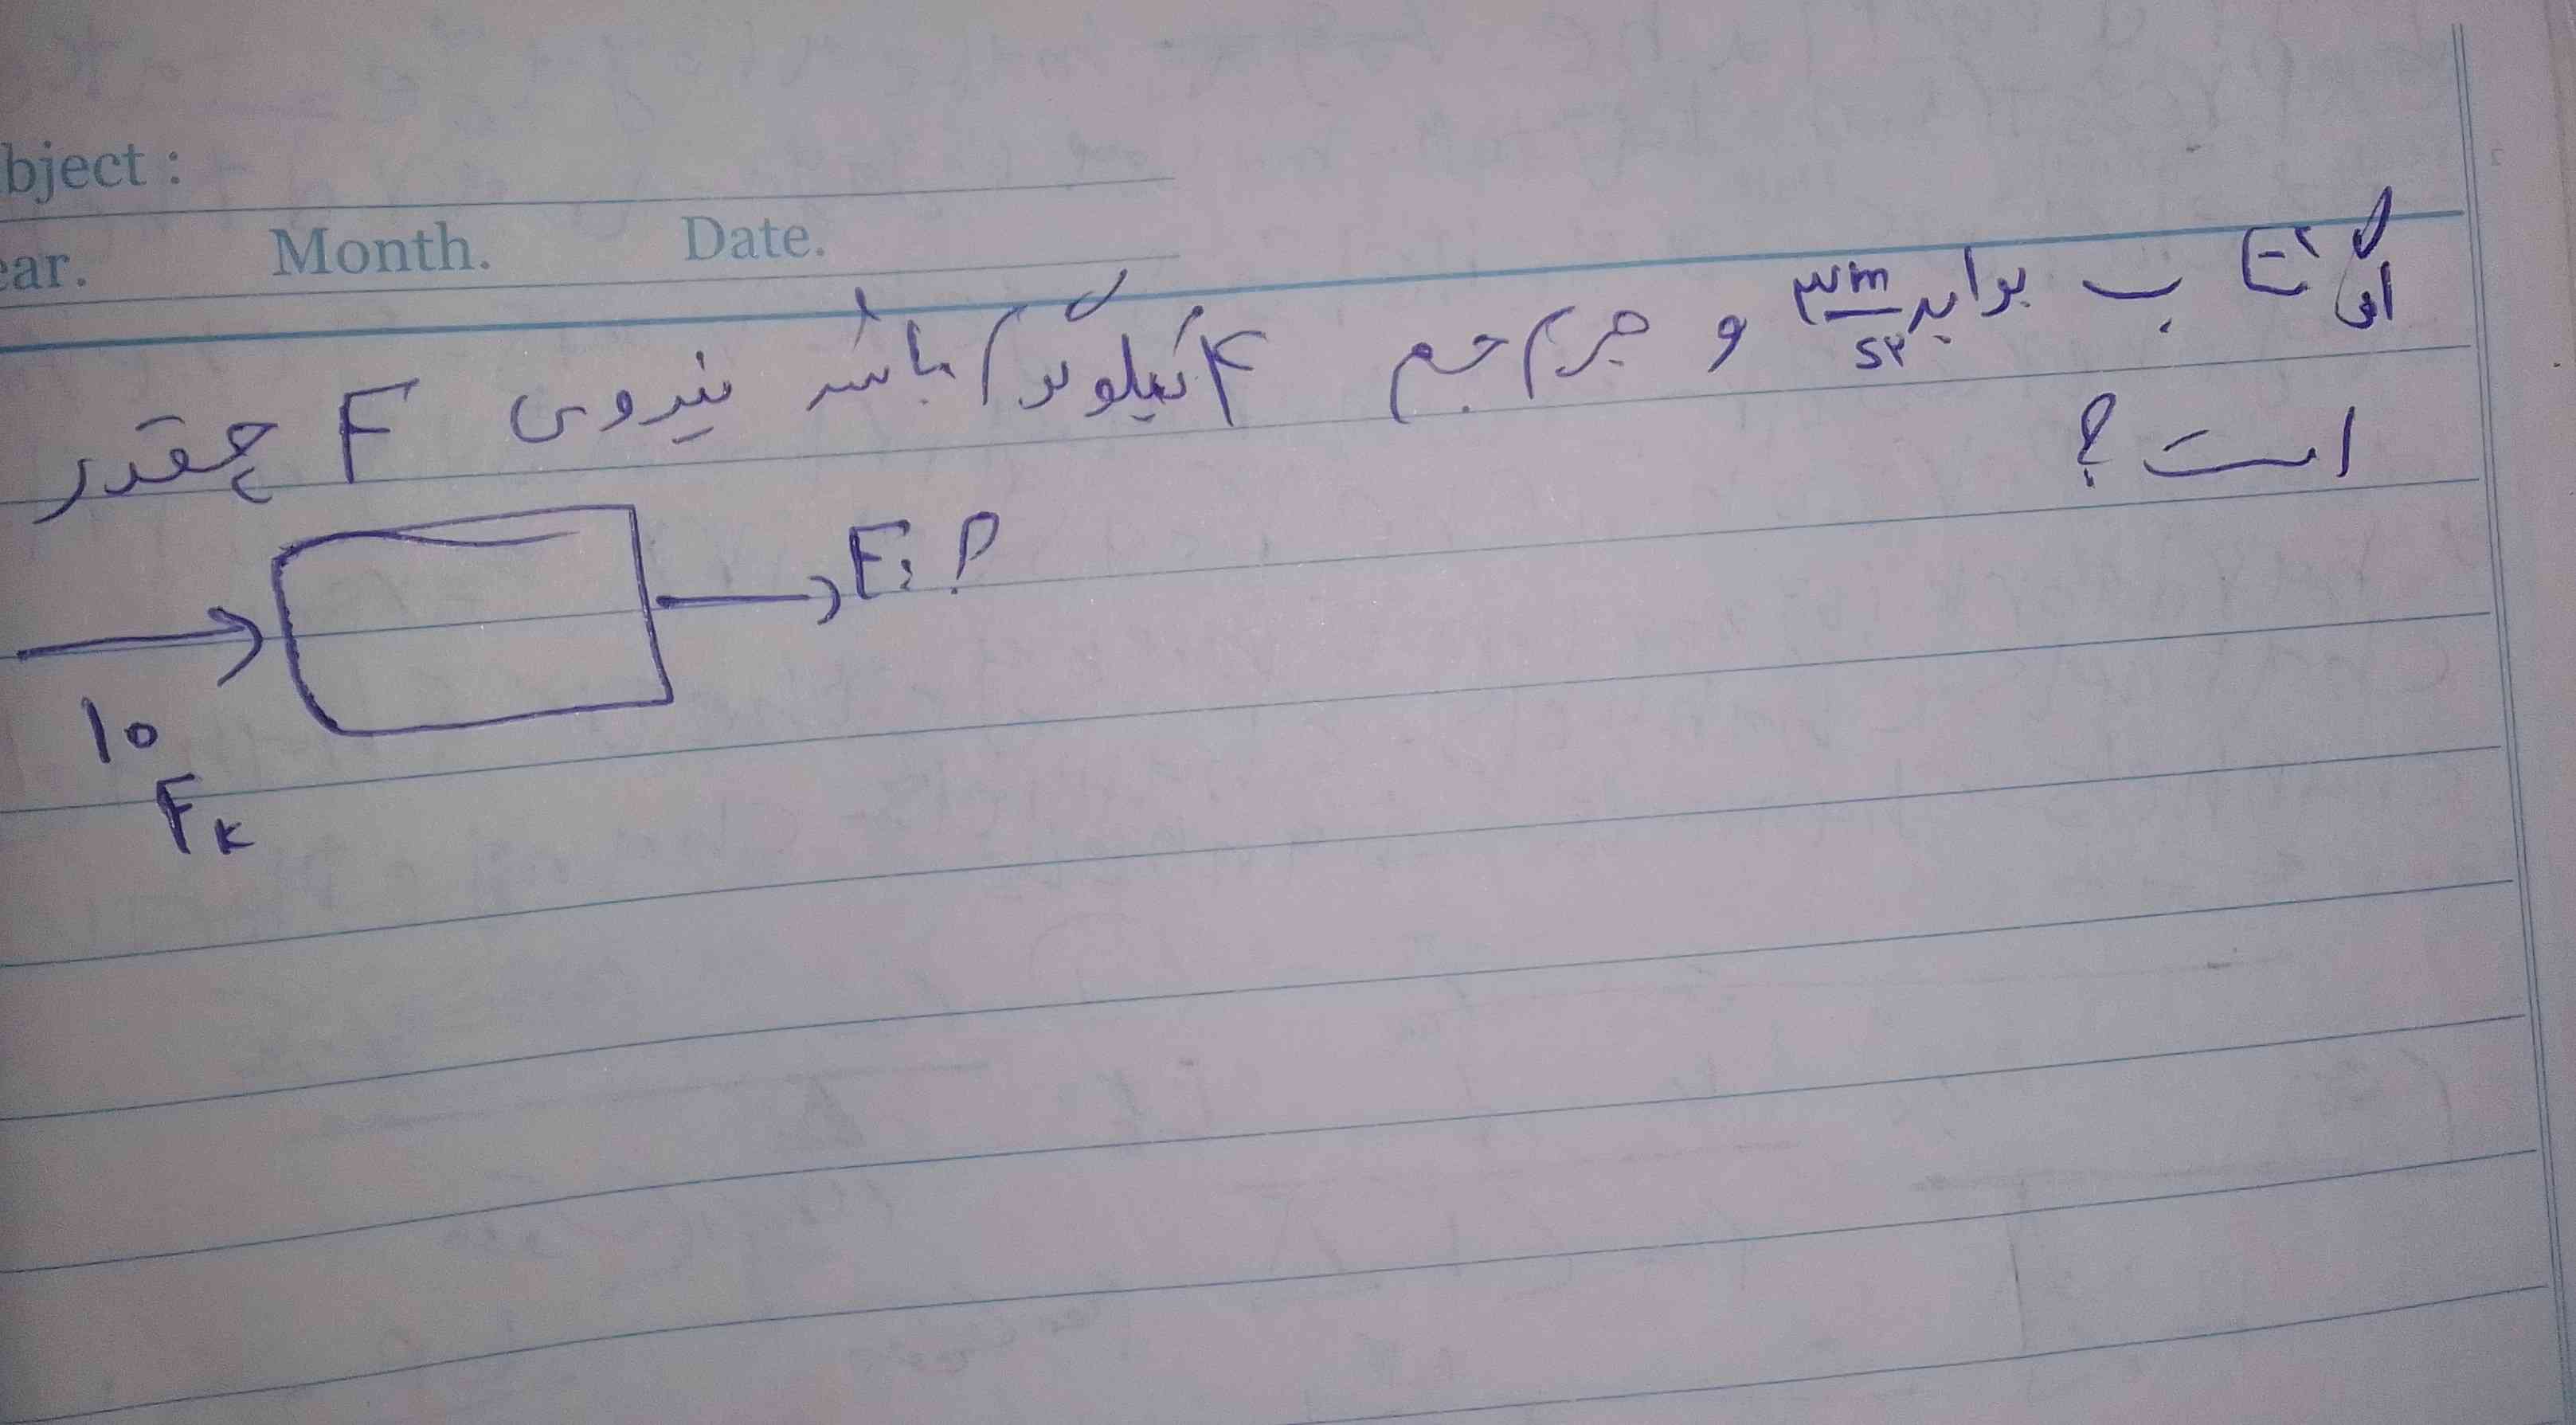 bject :
ear. Month. Date.
اگر شتاب برابر ۳m/s۲ و جرم جسم ۴ کیلوگرم باشد نیروی F چقدر
است؟
F: ?
۱۰
Fk